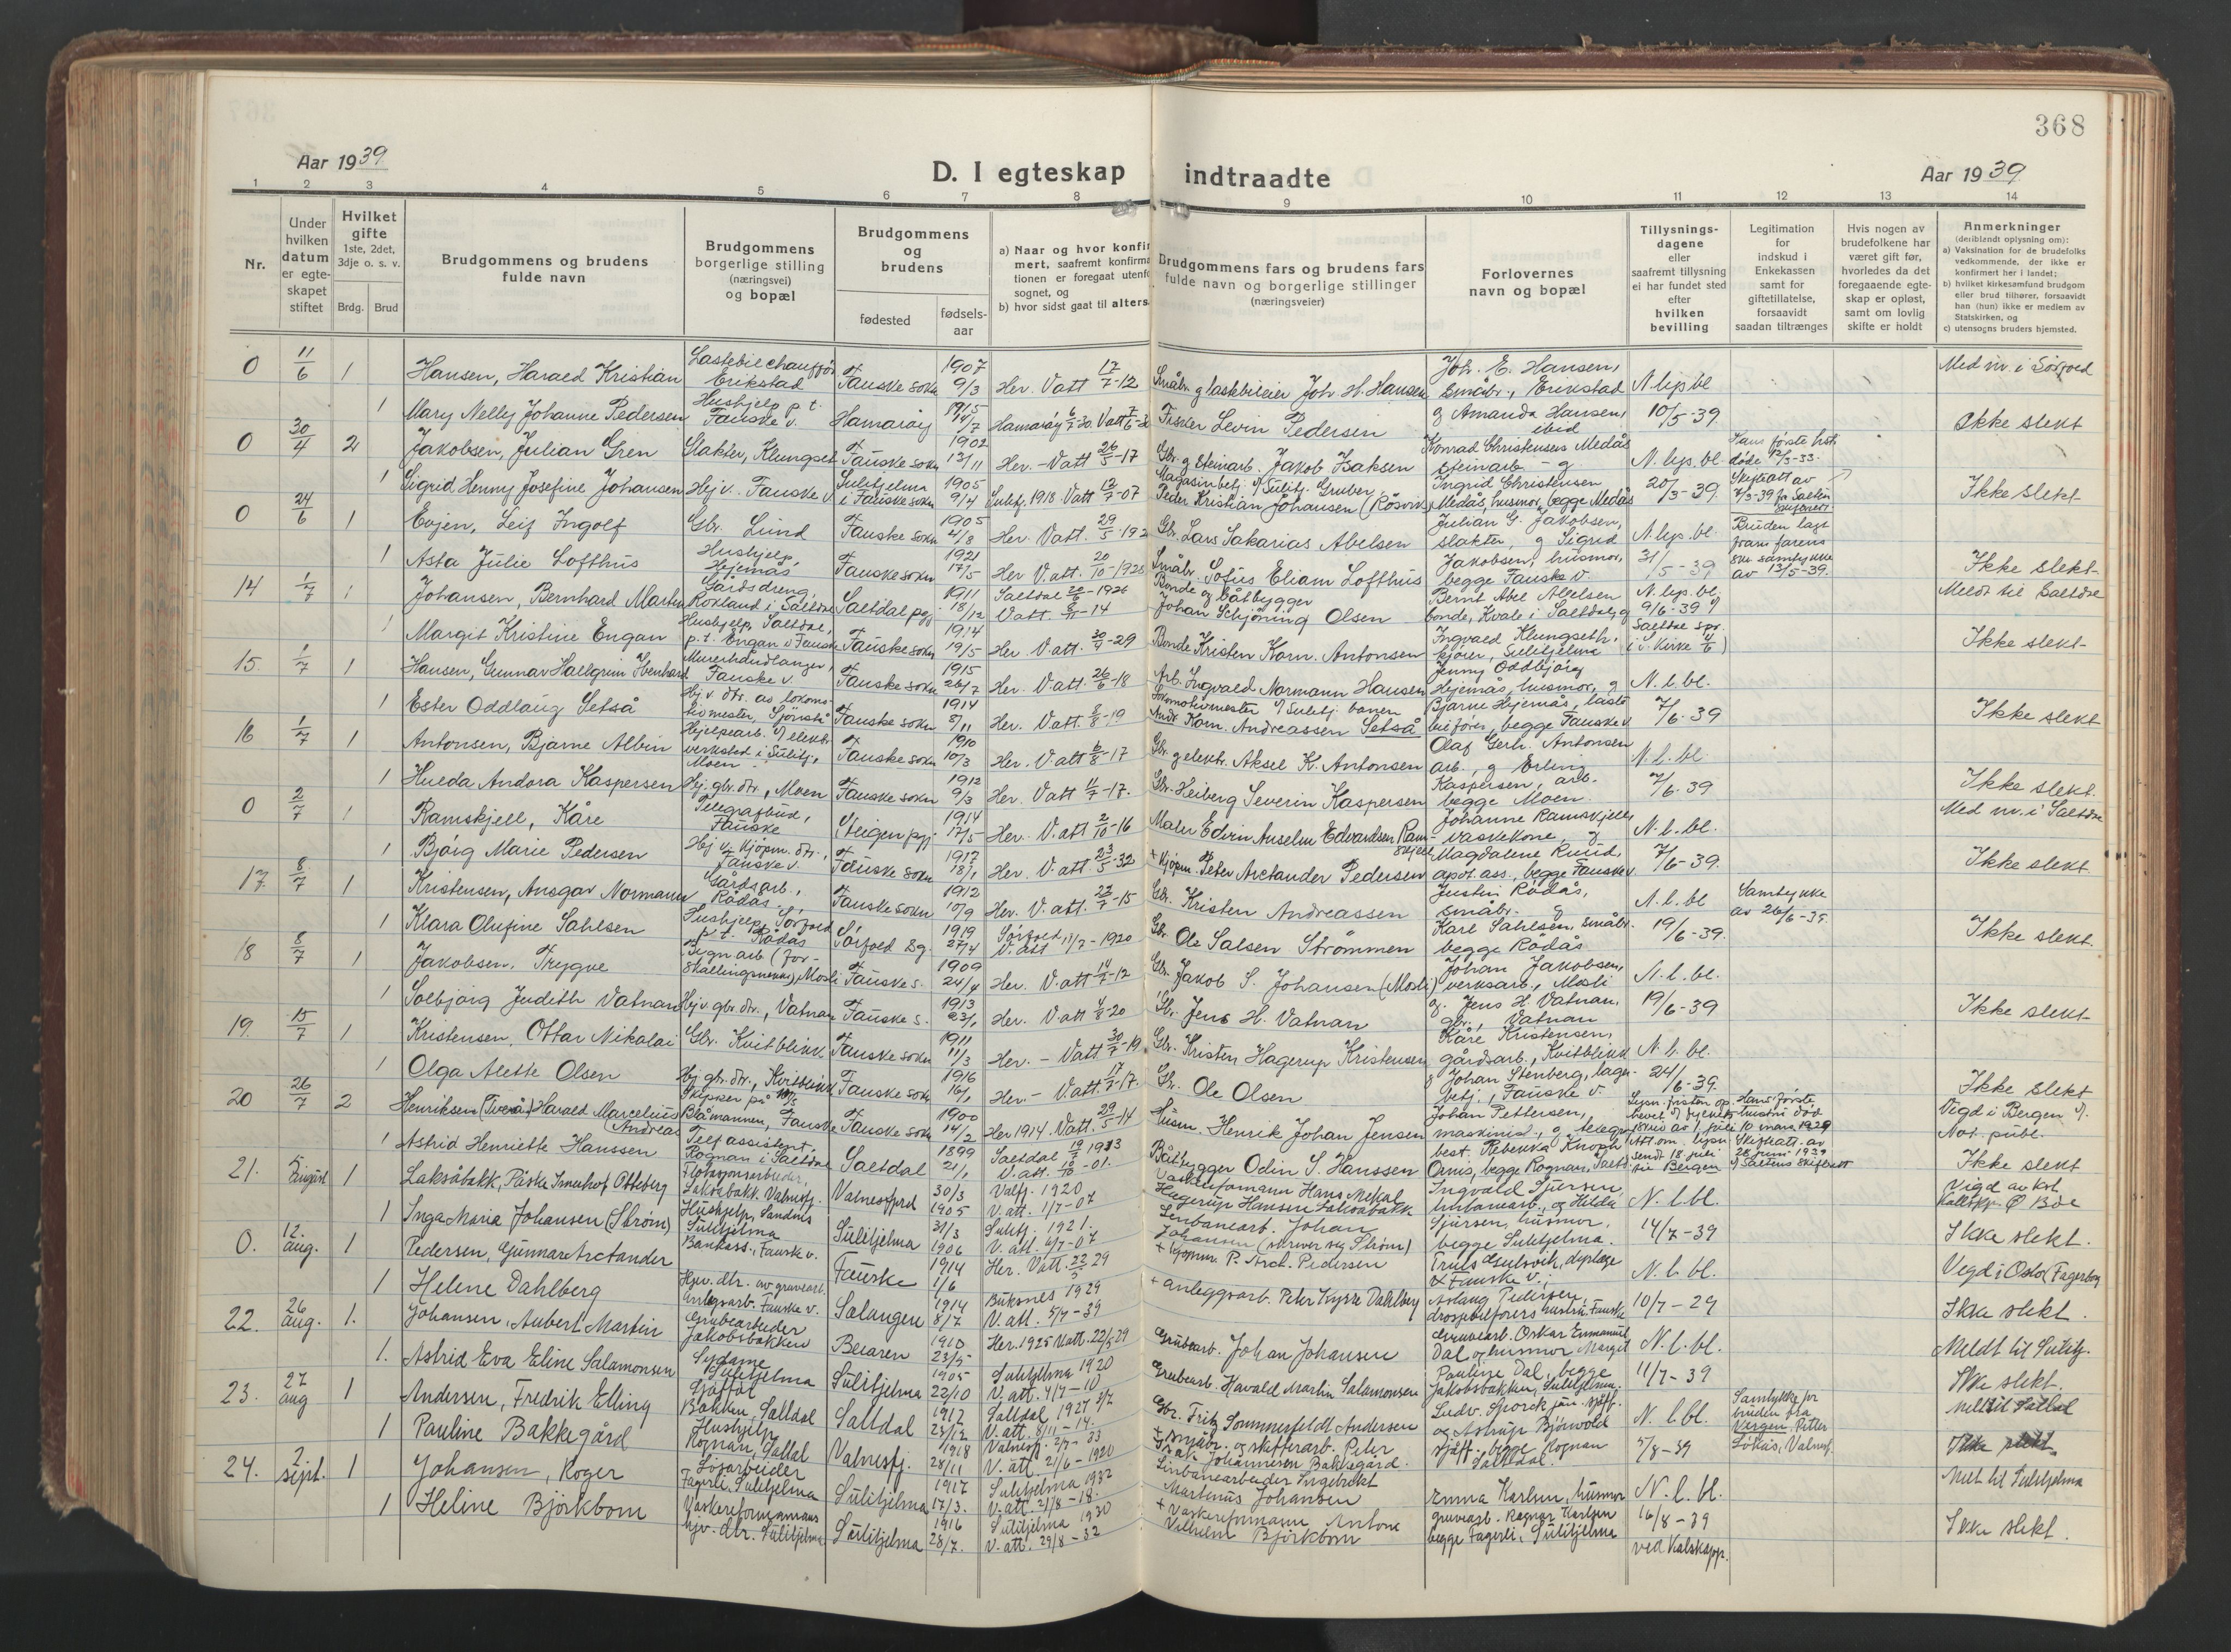 368
Aar 1939
D. I egteskap indtraadte
Aar 1939
1 2 3 4 5 6 7 8 9 10 11 12 13 14
Nr.
Under hvilken datum er egteskapet stiftet
Hvilket gifte 1ste, 2det, 3dje o. s. v.
Brdg. Brud
Brudgommens og brudens fulde navn
Brudgommens borgerlige stilling (næringsvei) og bopæl
Brudgommens og brudens
fødested
fødselsaar
a) Naar og hvor konfir
mert, saafremt konfirma
tionen er foregaat utenfo
sognet, og
b) hvor sidst gaat til alters
Brudgommens fars og brudens fars fulde navn og borgerlige stillinger (næringsveier)
Forlovernes navn og bopæl
Tillysningsdagene eller saafremt tillysning ei har fundet sted efter hvilken bevilling
Legitimation for indskud i Enkekassen samt for giftetillatelse, forsaavidt saadan tiltrænges
Hvis nogen av brudefolkene har været gift før, hvorledes da det foregaaende egteskap er opløst, samt om lovlig skifte er holdt
Anmerkninger
(deriblandt oplysning om):
a) Vaksination for de brudefolks vedkommende, der ikke er konfirmert her i landet;
b) hvilket kirkesamfund brudgom eller brud tilhører, forsaavidt han (hun) ikke er medlem av Statskirken, og
c) utensogns bruders hjemsted.
0 11/6 1 Hansen, Harald Kristian Lastebilchauffør Erikstad Fauske sokn 1907 9/3 Her. Vatt 17/7-12 Småbr. g lastebileier Joh. H. Hansen Joh. E. Hansen, småbr., Erikstad N. lys. bl
1 Mary Nelly Johanne Pedersen Hushjelp p.t. Fauske v. Hamarøy 1915 14/7 Fisker Levin Pedersen g Amanda Hansen, ibid 10/5-39 Ikke slekt
0 30/4 2 Jakobsen, Julian Gren Slakter, Klungset Fauske sokn 1902 13/11 Her. - Vatt 26/5-17 Gbr. g steinarb. Jakob Isaksen Konrad Christensen Medås steinarb - g N. lys. bl. Hans første hstr døde 12/3-33.
1 Sigrid Henny Josefine Johansen Hej v. Fauske v Sulitjelma i Fauske sokn 1905 9/4 Sulitj. 1918. Vatt 13/7-07 Magasinbetj. v/ Sulitj. Gruber Peder Kristian Johansen (Røsvik) Ingrid Christensen Medås, husmor, begge Medås 20/3-39 Skifteatt av 7/3-39 fr Salten skifterett Ikke slekt
0 24/6 1 Evjen, Leif Ingolf Gbr. Lund Fauske sokn 1905 4/8 Her. Vatt. 29/5-192 Gbr. Lars Sakarias Abelsen Julian G. Jakobsen, slakter, g Sigrid N. lys. bl. Bruden lagt fram farens
1 Asta Julie Lofthus Hushjelp, Hjemås Fauske sokn 1921 17/5 Her V. att. 20/10-1925 Småbr. Sofus Eliam Lofthus Jakobsen, husmor, begge Fauske v. 31/5-39 skr. samtykke av 13/5-39. Ikke slekt
14 1/7 1 Johansen, Bernhard Martin Gårdsdreng, Rokland i Saltdal Saltdal pgj. 1911 18/12 Saltdal 20/6-1926 V att. 8/11-14 Bonde og båtbygger Johan Schjöning Olsen Bernt Abel Abelsen bonde, Kvale i Saltdal, g N. lys. bl. 9/6-39 Meldt til Saltdal
1 Margit Kristine Engan Hushjelp, Saltdal, p.t. Engan i Fauske Fauske sokn 1914 19/5 Her V. att. 30/4-29 Bonde Kristen Korn. Antonsen Ingvald Klungseth, kjører, Sulitjelma Saltdal spr. i S. Kirke 4/6) Ikke slekt
15. 1/7 1 Hansen, Gunnar Hallgrim Ibenhard Murerhåndlanger, Fauske v. Fauske sokn 1915 26/7 Her. V. att. 26/6-18 Arb. Ingvald Normann Hansen Jenny Oddbjørg Hjemås, husmor, g N. l. bl.
1 Ester Oddlaug Setså Hj. v. dtr. av lokomotivmester, Sjønstå Fauske sokn 1914 8/11 Her. V att. 8/8-19 Lokomotivmester v/ Sulitj. banen Andr. Korn. Andreassen Setså Bjarne Hjemås, lastebilfører, begge Fauske v. 7/6-39 Ikke slekt
16 1/7 1 Antonsen, Bjarne Albin Hjelpearb. v/ elektr. verksted i Sulitj., Moen Fauske sokn 1910 10/3 Her. V. att 6/8-17 Gbr. g elektr. Aksel K. Antonsen Olaf Gerh. Antonsen arb., g Erling N. l. bl.
1 Hulda Andora Kaspersen Hj. gbr. dtr, Moen Fauske sokn 1912 9/3 Her. Vatt 11/7-17. Gbr. Heiberg Severin Kaspersen Kaspersen, arb. begge Moen. 7/6.39 Ikke slekt.
0 2/7 1 Ramskjell, Kåre Telegrafbud, Fauske Steigen pgj. 1914 17/5 Her. V. att 2/10-16 Maler Edvin Anselm Edvardsen Ramskjell Johanne Ramskjell vaskekone, g N. l. bl. Med nr. i Saltdal
1 Bjørg Marie Pedersen Hj v. kjøpm. dtr., Fauske v. Fauske sokn 1917 18/1 Her. V. att 23/5-32 + Kjøpm. Peter Arctander Pedersen Magdalene Ruud, apot. ass., begge Fauske v. 7/6-39. Ikke slekt
17. 8/7 1 Kristensen, Ansgar Normann Gårdsarb., Rödås Fauske sokn 1912 10/9 Her. V. att. 23/7-15 Gbr. Kristen Andreassen Justin Rödås, småbr. g N. l. bl Samtykke av 26/6-39.
1 Klara Olufine Sahlsen Hushjelp, Sørfold p.t. Rödås Sørfold sg. 1919 27/4 Sørfold V. att 17/7-1920 Gbr. Ole Salsen Strømmen Karl Sahlsen, småbr. begge Rödås 19/6-39. Ikke slekt.
18 8/7 1 Jakobsen, Trygve Bygn arb (forskallingsmann), Mosli Fauske s. 1909 24/4 Her. V. att 14/7-12 Gbr. Jakob S. Johansen (Mosli) Johan Jakobsen, verksarb., Mosli N. l. bl.
1 Solbjørg Judith Vatnan Hj v. gbr. dtr., Vatnan Fauske s. 1913 23/1 Her. V att 4/8-20 Gbr. Jens H. Vatnan g. Jens H. Vatnan, gbr., Vatnan 19/6-39 Ikke slekt
19. 15/7 1 Kristensen, Ottar Nikolai Gbr. Kvitblikk Fauske sokn 1911 11/3 Her. - Vatt 30/7-19 Gbr. Kristen Hagerup Kristensen Kåre Kristensen, gårdsarb., Kvitblikk N. l. bl.
1 Olga Alette Olsen Hj. gbr. dtr., Kvitblikk Fauske sokn 1916 16/1 Her - V. att. 17/7-17. Gbr. Ole Olsen g Johan Stenberg, lagerbetj., Fauske v. 24/6-39. Ikke slekt
20 26/7 2 Henriksen (Tverå) Harald Marcelius Andreas Skipper på M/S Blåmannen, Fauske Fauske sokn 1900 14/2 Her 1914. Vatt. 29/5-14 Husm. Henrik Johan Jensen Johan Pettersen, maskinist, g telegr. Hans første hustru död 10 mars 1929 Vigd i Bergen v/ Not. publ.
1 Astrid Henriette Hanssen Telf assistent, Rognan i Saltdal Saltdal 1899 21/1 Saltdal 19/7 1913 V. att. 18/10-01. Båtbygger Odin S. Hanssen best. Rebekka Knoph Ornis, begge Rognan, Saltd. sendt 18 juli til Bergen Skifteatt. av 28 juni 1939 v/ Saltens skifterett Ikke slekt
21. 5 August 1 Laksåbakk, Påske Imenhof Otteberg Flotasjonsarbeider, Laksåbakk Valnesfj. Valnesfjord 30/3 1905 Valfj. 1920 V. att. 1/7-07 Vaskeriformann Hans Mekal Hagerup Hansen Laksåbakk Ingvald Sjursen linbanearb., og Hilda N. l. bl. Vigd av kst. kallskap. Ø Bøe
1 Inga Maria Johansen (Strøm) Hushjelp, Sandnes Sulitjelma Sulitjelma 31/3 1906 Sulitj. 1921. V. att. 4/7-07 Linbanearb. Johan Johansen (skriver seg Strøm) Sjursen, husmor, begge Sulitjelma. 14/7-39 Ikke slekt.
0. 12. aug. 1 Pedersen, Gunnar Arctander Bankass., Fauske v. Fauske 1914 1/6 Her. Vatt. 22/5 29 + Kjøpm. P. Arct. Pedersen N. l. bl. Vigd i Oslo (Fagerborg
1 Helene Dahlberg Hjv. dtr. av gruvearb. anlegsarb. Fauske v. Salangen 1914 8/7 Buksnes 1929 V. att. 5/7-39 + anleggsarb. Peter Kysse Dahlberg Aslaug Pedersen, drosjebilførers hustru, Fauske 10/7-29 Ikke slekt.
22. 26 aug. 1. Johansen, Aubert Martin Grubearbeider Jakobsbakken Beiaren 1910 23/5 Her. 1925 Vatt. 22/5 29 Grubearb. Johan Johansen Gruvearb. Oskar Emmanuel Dal og husmor Margit N. l. bl. Meldt til Sulitj.
1. Astrid Eva Eline Salamonsen Sydame Sulitjelma Sulitjelma 1905 22/10 Sulitjelma 1920 V. att. 4/7-10 Grubearb. Havald Martin Salamonsen Pauline Dal, begge Jakobsbakken, Sulitjelma. 11/7-39 Ikke slekt.
23. 27 aug 1 Andersen, Fredrik Elling Sjåffør Bakken, Saltdal Saltdal 1912 23/12 Saltdal 1927 V. att. 8/11-14. Gbr. Fritz Sommerfeldt Andersen Ludv. Sporck jun. sjåff. og Astrup Bjørvold N. l. bl. Samtykke for bruden fra Vergen Peter Løkås, Valnesf. meldt til Saltdal
1 Pauline Bakkegård Hushjelp Rognan, Saltdal Valnesfj. 1918 28/11 Valnesfj. 2/7-33 V. att. 21/6-1920 + småbr. og skifferarb. Peter Johannesen Bakkegård. sjåff. begge Rognan Saltdal. 5/8-39 Ikke slekt
24. 2 sept. 1 Johansen, Roger Løsarbeider Fagerli, Sulitjelma Sulitjelma 1917 17/3. Sulitjelma 1932 V. att. 21/8-18. Linbanearbeider Ingebrekt Martinus Johansen Emma Karlsen, husmor N. l. bl. Melt til Sulitjelma
1 Heline Björkbom Vaskeriformanns hjv. dtr. Sulitjelma Sulitjelma 1916 28/7. Sulitjelma 1930 V. att. 29/8-32 + Vaskeriformann Antone Vilhelm Björkbom gruvearb. Ragnar Karlsen begge Fagerli, Sulitjelma 16/8-39 ved Kalskapp. Ikke slekt.